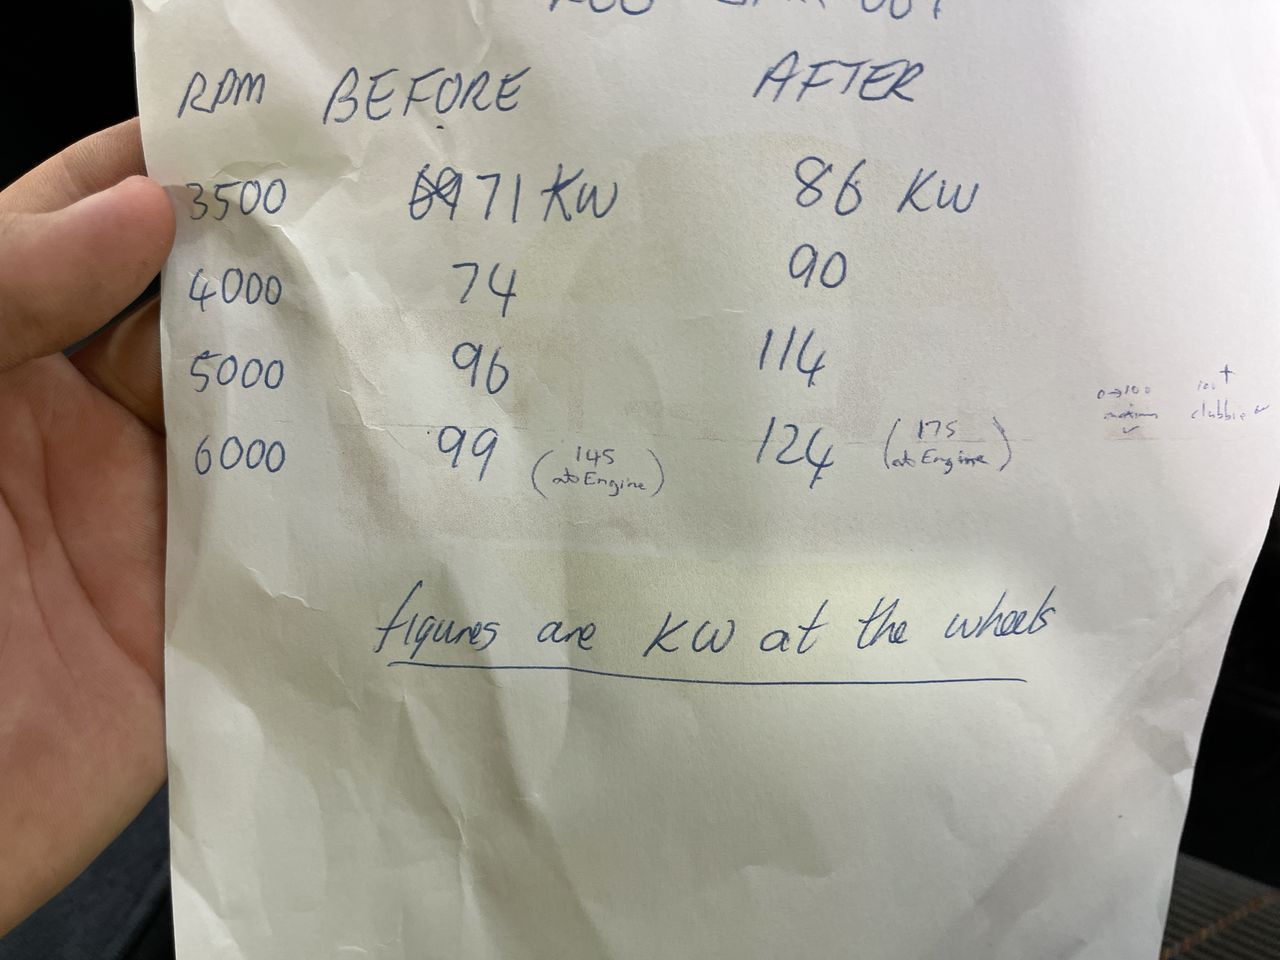 RPM BEFORE AFTER
3500 69 71 KW 86 KW
4000 74 90
5000 96 114
6000 99 (145 at Engine) 124 (175 at Engine)
0→100 100+
clubbie
figures are KW at the wheels